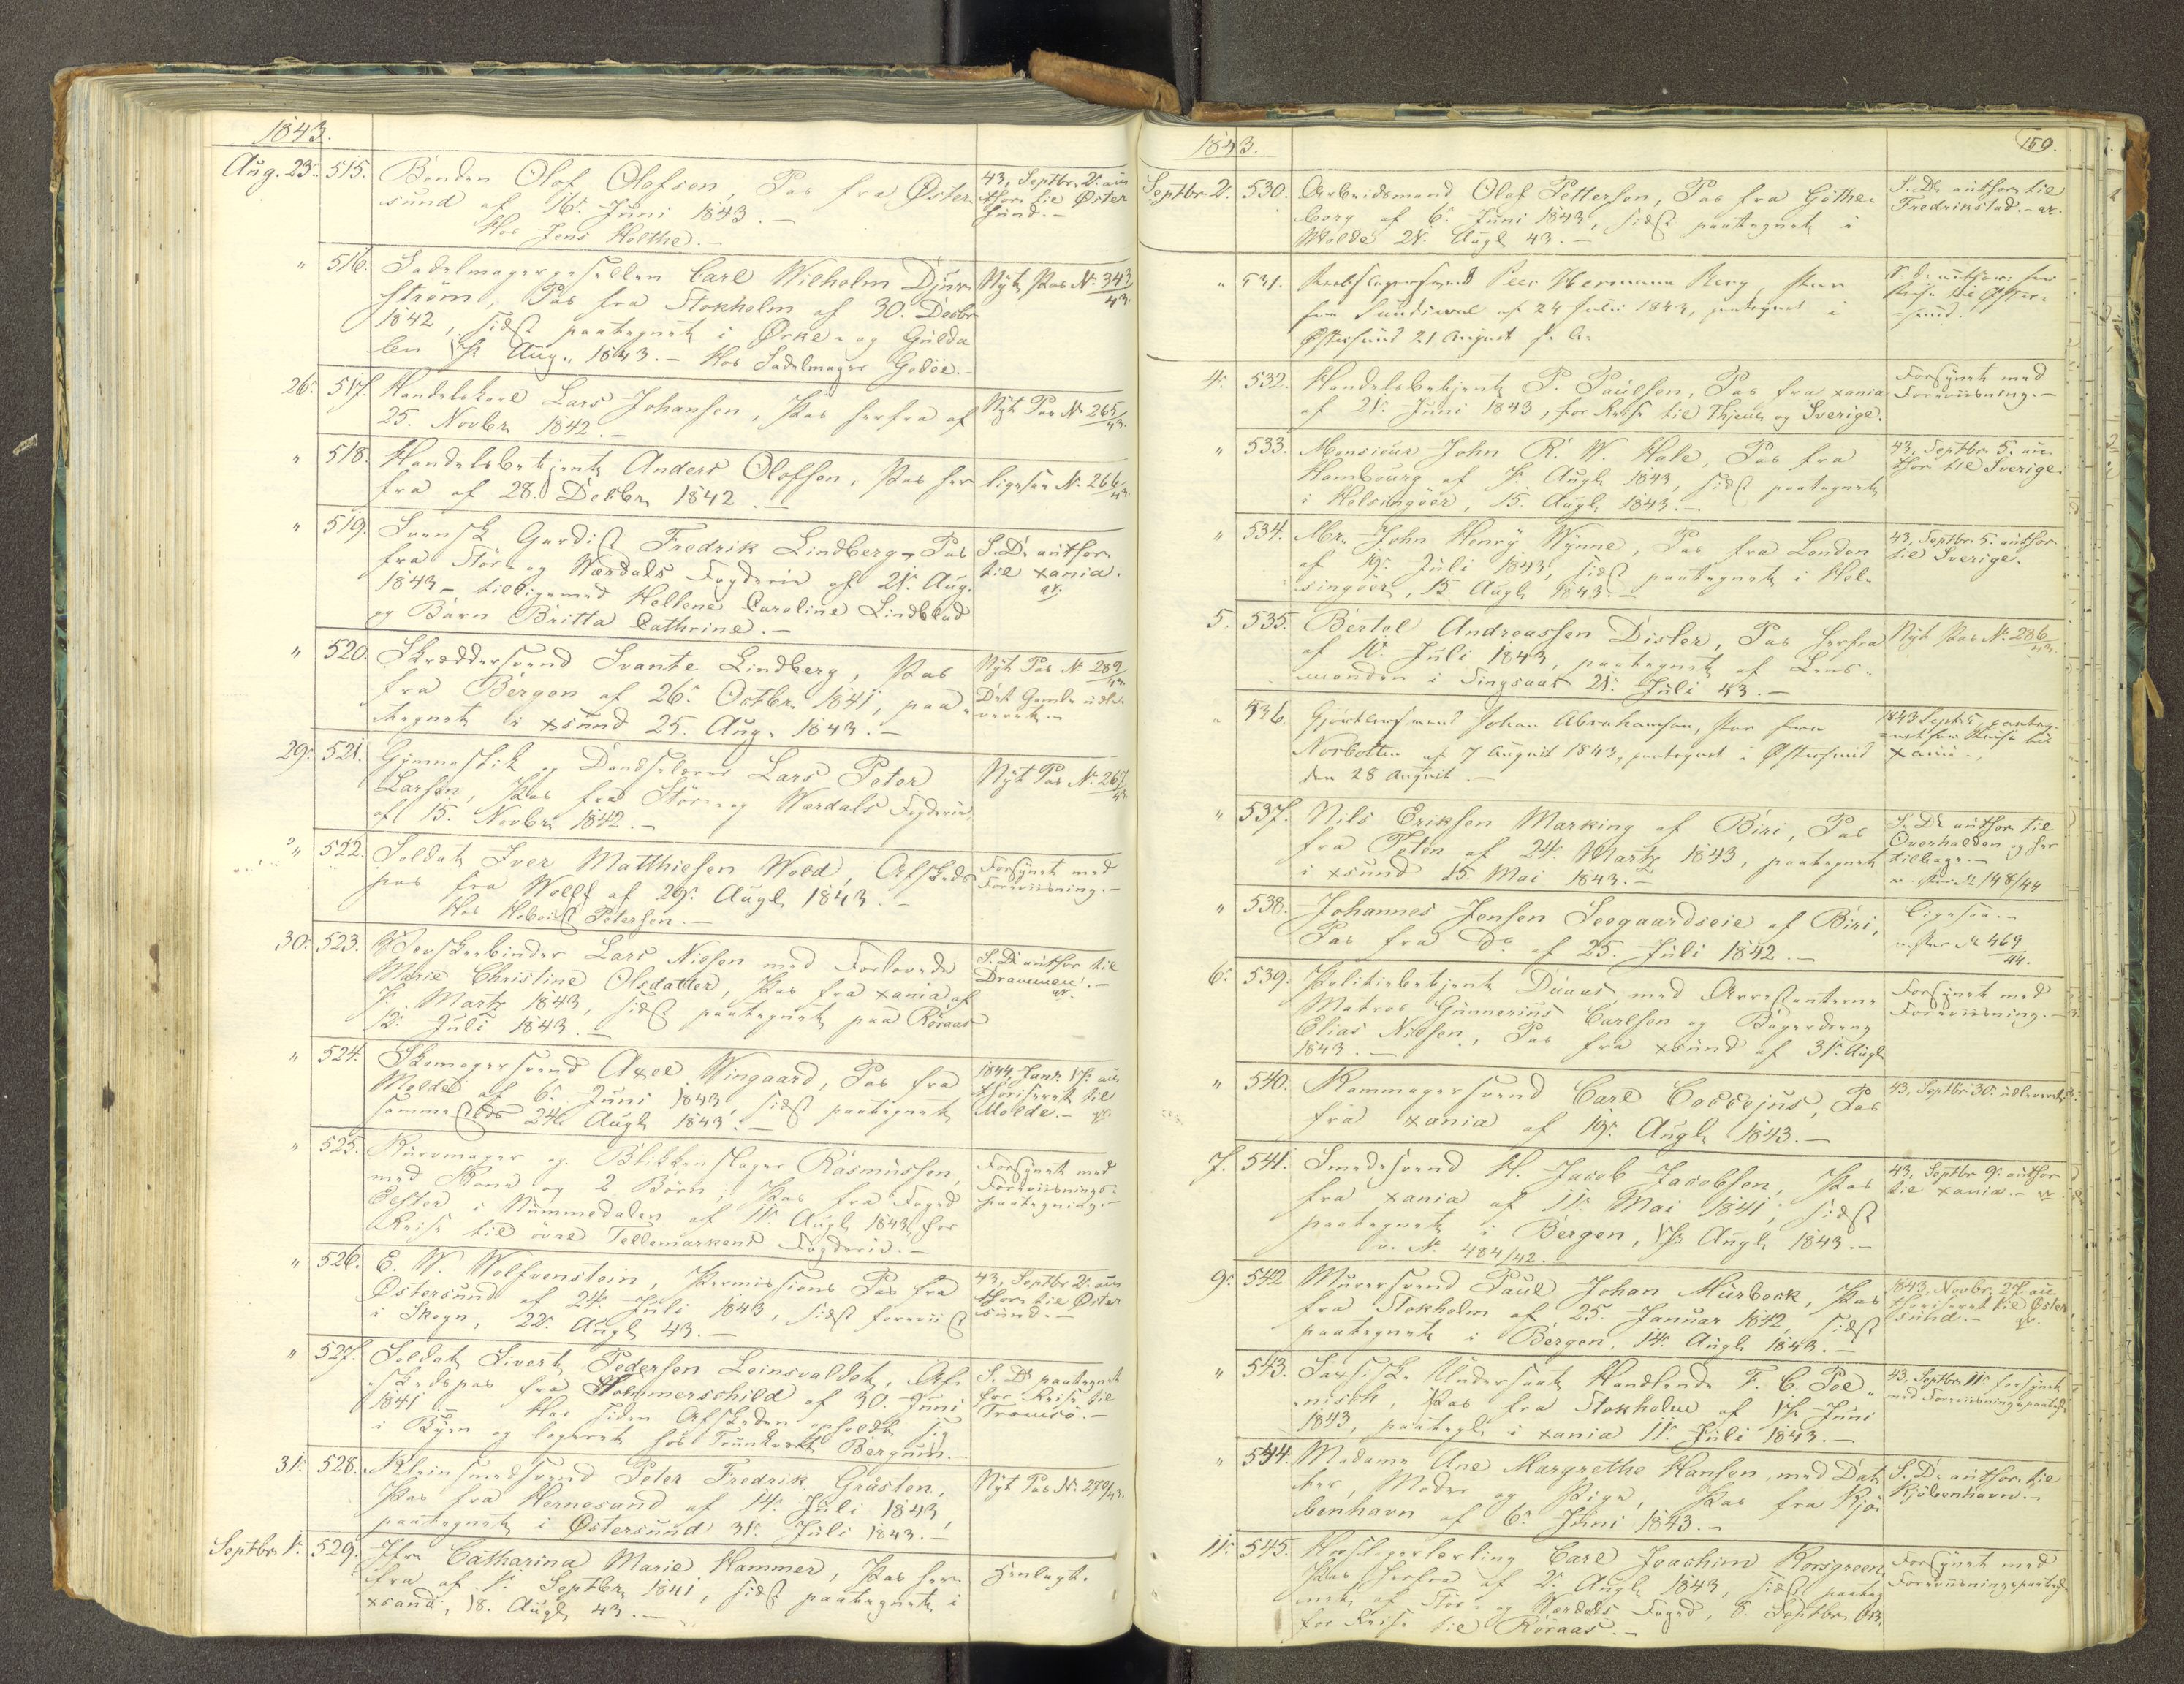 1843.
Aug. 23. 515. Bonden Olof Olofsen, Pas fra Øster-
sund af 16. Juni 1843.-
Hos Jens Holthe.-
43, Septbr. 2. au-
thor. til Øster
sund.-
" 516. Sadelmagergesellen Carl Wilhelm Djur-
ström, Pas fra Stokholm af 30. Decbr.
1842, sidst paategnet i Ørke- og Gulda
len Aug. 1843.- Hos Sadelmager Godöe.-
Nyt Pas No. 343/43.
26. 517. Handelskarl Lars Johansen, Pas herfra af
25. Novbr. 1842.-
Nyt Pas No. 265/43.
" 518. Handelsbetjent Anders Olofsen, Pas her-
fra af 28. Decbr. 1842.-
ligesaa No. 266/43.
" 519. Svensk Gardist Fredrik Lindberg, Pas
fra Stör- og Værdals Fogderie af 21. Aug.
1843 - tilligemed Hellena Caroline Lindblad
og Barn Britta Cathrine.-
S. D. author.
til xania.
" 520. Skræddersvend Svante Lindberg, Pas
fra Bergen af 26. Octbr. 1841, paa-
tegnet i xsund 25. Aug. 1843.-
Nyt Pas No. 282/43.
Det Gamle udle-
veret.-
29. 521. Gymnastik og Dandselærer Lars Peter
Larsen, Pas fra Stör- og Værdals Fogderie
af 15. Novbr. 1842.-
Nyt Pas No. 267/43.
" 522. Soldat Iver Matthiesen Wold, Afskeds-
pas fra Wolff af 29. Augt. 1843.-
Hos Hoboist Petersen.-
Forsynet med
Foreviisning.-
30. 523. Væverskebinder Lars Nielsen med Forlovede
Marie Christine Olsdatter, Pas fra xania af
7. Martz 1843, sidst paategnet paa Röraas
12. Juli 1843.-
S. D. author. til
Drammen.-
" 524. Skomagersvend Axel Wingaard, Pas fra
Molde af 6. Juni 1843, sidst paategnet
sammesteds 24. Augt. 1843.-
1844, Janr. 17. au-
thoriseret til
Molde.-
" 525. Kurvmager og Blikkenslager Rasmussen,
med Kone og 2 Börn, Pas fra Foged
Eefter i Nummedalen af 11. Augt. 1843, for
Reise til övre Tellemarkens Fogderie.-
Forsynet med
Foreviisnings-
paategning.-
" 526. E. W. Wolfvenstein, Permissions Pas fra
Östersund af 24. Juli 1843, sidst foreviist
i Skogn, 22. Augt. 43.-
43, Septbr. 2. au-
thor. til Öster
sund.-
" 527. Soldat Sivert Pedersen Leinsvaldet, Af-
skedspas fra Hammerschild af 30. Juni
1841.- Har siden Afskeden opholdt sig
i Byen og logeret hos Bergum.-
S. D. paategnet
for Reise til
Tromsö.-
31. 528. Kleinsmedsvend Peter Fredrik Gråsten,
Pas fra Hernösand af 14. Juli 1843,
paategnet i Östersund 31. Juli 1843.-
Nyt Pas No. 270/43.
Septbr. 1. 529. Jfr. Catharina Marie Hammer, Pas her-
fra af 1. Septbr. 1841, sidst paategnet i
xsand, 18. Augt. 43.-
Henlagt.
1843.
159.
Septbr. 2. 530. Arbeidsmand Olof Pettersen, Pas fra Gothe-
borg af 6. Juni 1843, sidst paategnet i
Molde 21. Augt. 43.-
S. D. author. til
Fredrikstad.-
" 531. Peer Hermann Berg, Pas
fra Sundswal af 24 Juli 1843, paategnet i
Østersund 21 August
S. D. author. for
Reise til Øster-
sund.
4. 532. Handelsbetjent P. Paulsen, Pas fra xania
af 21. Juni 1843, for Reise til Thjem og Sverige.
Forsynet med
Foreviisning.-
" 533. Monsieur John R. W. Hale, Pas fra
Hambourg af 7. Augt. 1843, sidst paategnet
i Helsingöer, 15. Augt. 1843.-
43, Septbr. 5. au-
thor. til Sverige.
" 534. Mr. John Henry Wynne, Pas fra London
af 19. Juli 1843, sidst paategnet i Hel-
singöer, 15. Augt. 1843.-
43, Septbr. 5. author.
til Sverige.
5. 535. Bertel Andreassen Disler, Pas herfra
af 10. Juli 1843, paategnet af Lens-
manden i Singsaas 21. Juli 43.-
Nyt Pas No. 286/43.
" 536. Gjörtlersvend Johan Abrahamson, Pas fra
Norbotten af 7 August 1843, paategnet i Østersund
den 28 August.-
1843 Sept. 5, paateg-
net for Reise til
xania.-
" 537. Nils Eriksen Marking af Biri, Pas
fra Toten af 24. Martz 1843, paategnet
i xsund 15. Mai 1843.-
S. D. author. til
Overhalden og her
tilbage.-
v. Pas No 148/44
" 538. Johannes Jensen Seegaardseie af Biri,
Pas fra Do. af 25. Juli 1842.-
Ligesaa.-
v. Pas No 469/44.
6. 539. Politiebetjent Duaas, med Arrestanterne
Matros Gunnerius Carlsen og Bagerdreng
Elias Nilsen, Pas fra xsund af 31. Augt.
1843.-
Forsynet med
Foreviisning.-
" 540. Kammagersvend Carl Coccejus, Pas
fra xania af 19. Augt. 1843.-
43, Septbr. 30. udleveret.
7. 541. Smedesvend H. Jacob Jacobsen, Pas
fra xania af 11. Mai 1841, sidst
paategnet i Bergen, 17. Augt. 1843.-
v. No. 484/42.
43, Septbr. 9. author.
til xania.-
9. 542. Murersvend Paul Johan Murbeck, Pas
fra Stokholm af 25. Januar 1842, sidst
paategnet i Bergen, 14. Augt. 1843.-
1843, Novbr. 27. au-
thoriseret til Öster-
sund.-
" 543. Saxsiske Undersaat Handlende F. C. Poe-
nisch, Pas fra Stokholm af 17. Juni
1843, paategt. i xania 11. Juli 1843.-
43, Septbr. 11. forsynet
med Foreviisningspaategn.
" 544. Madame Ane Margrethe Hansen, med Dat-
ter, Moder og Pige, Pas fra Kjö-
benhavn af 6. Juni 1843.-
S. D. author. til
Kjöbenhavn.-
11. 545. Carl Joachim Korsgreen,
Pas herfra af 2. Augt. 1843, sidst paateg-
net af Stör- og Værdals Foged, 8. Septbr. 43,
for Reise til Röraas.-
Forsynet med
Foreviisningspaategn.